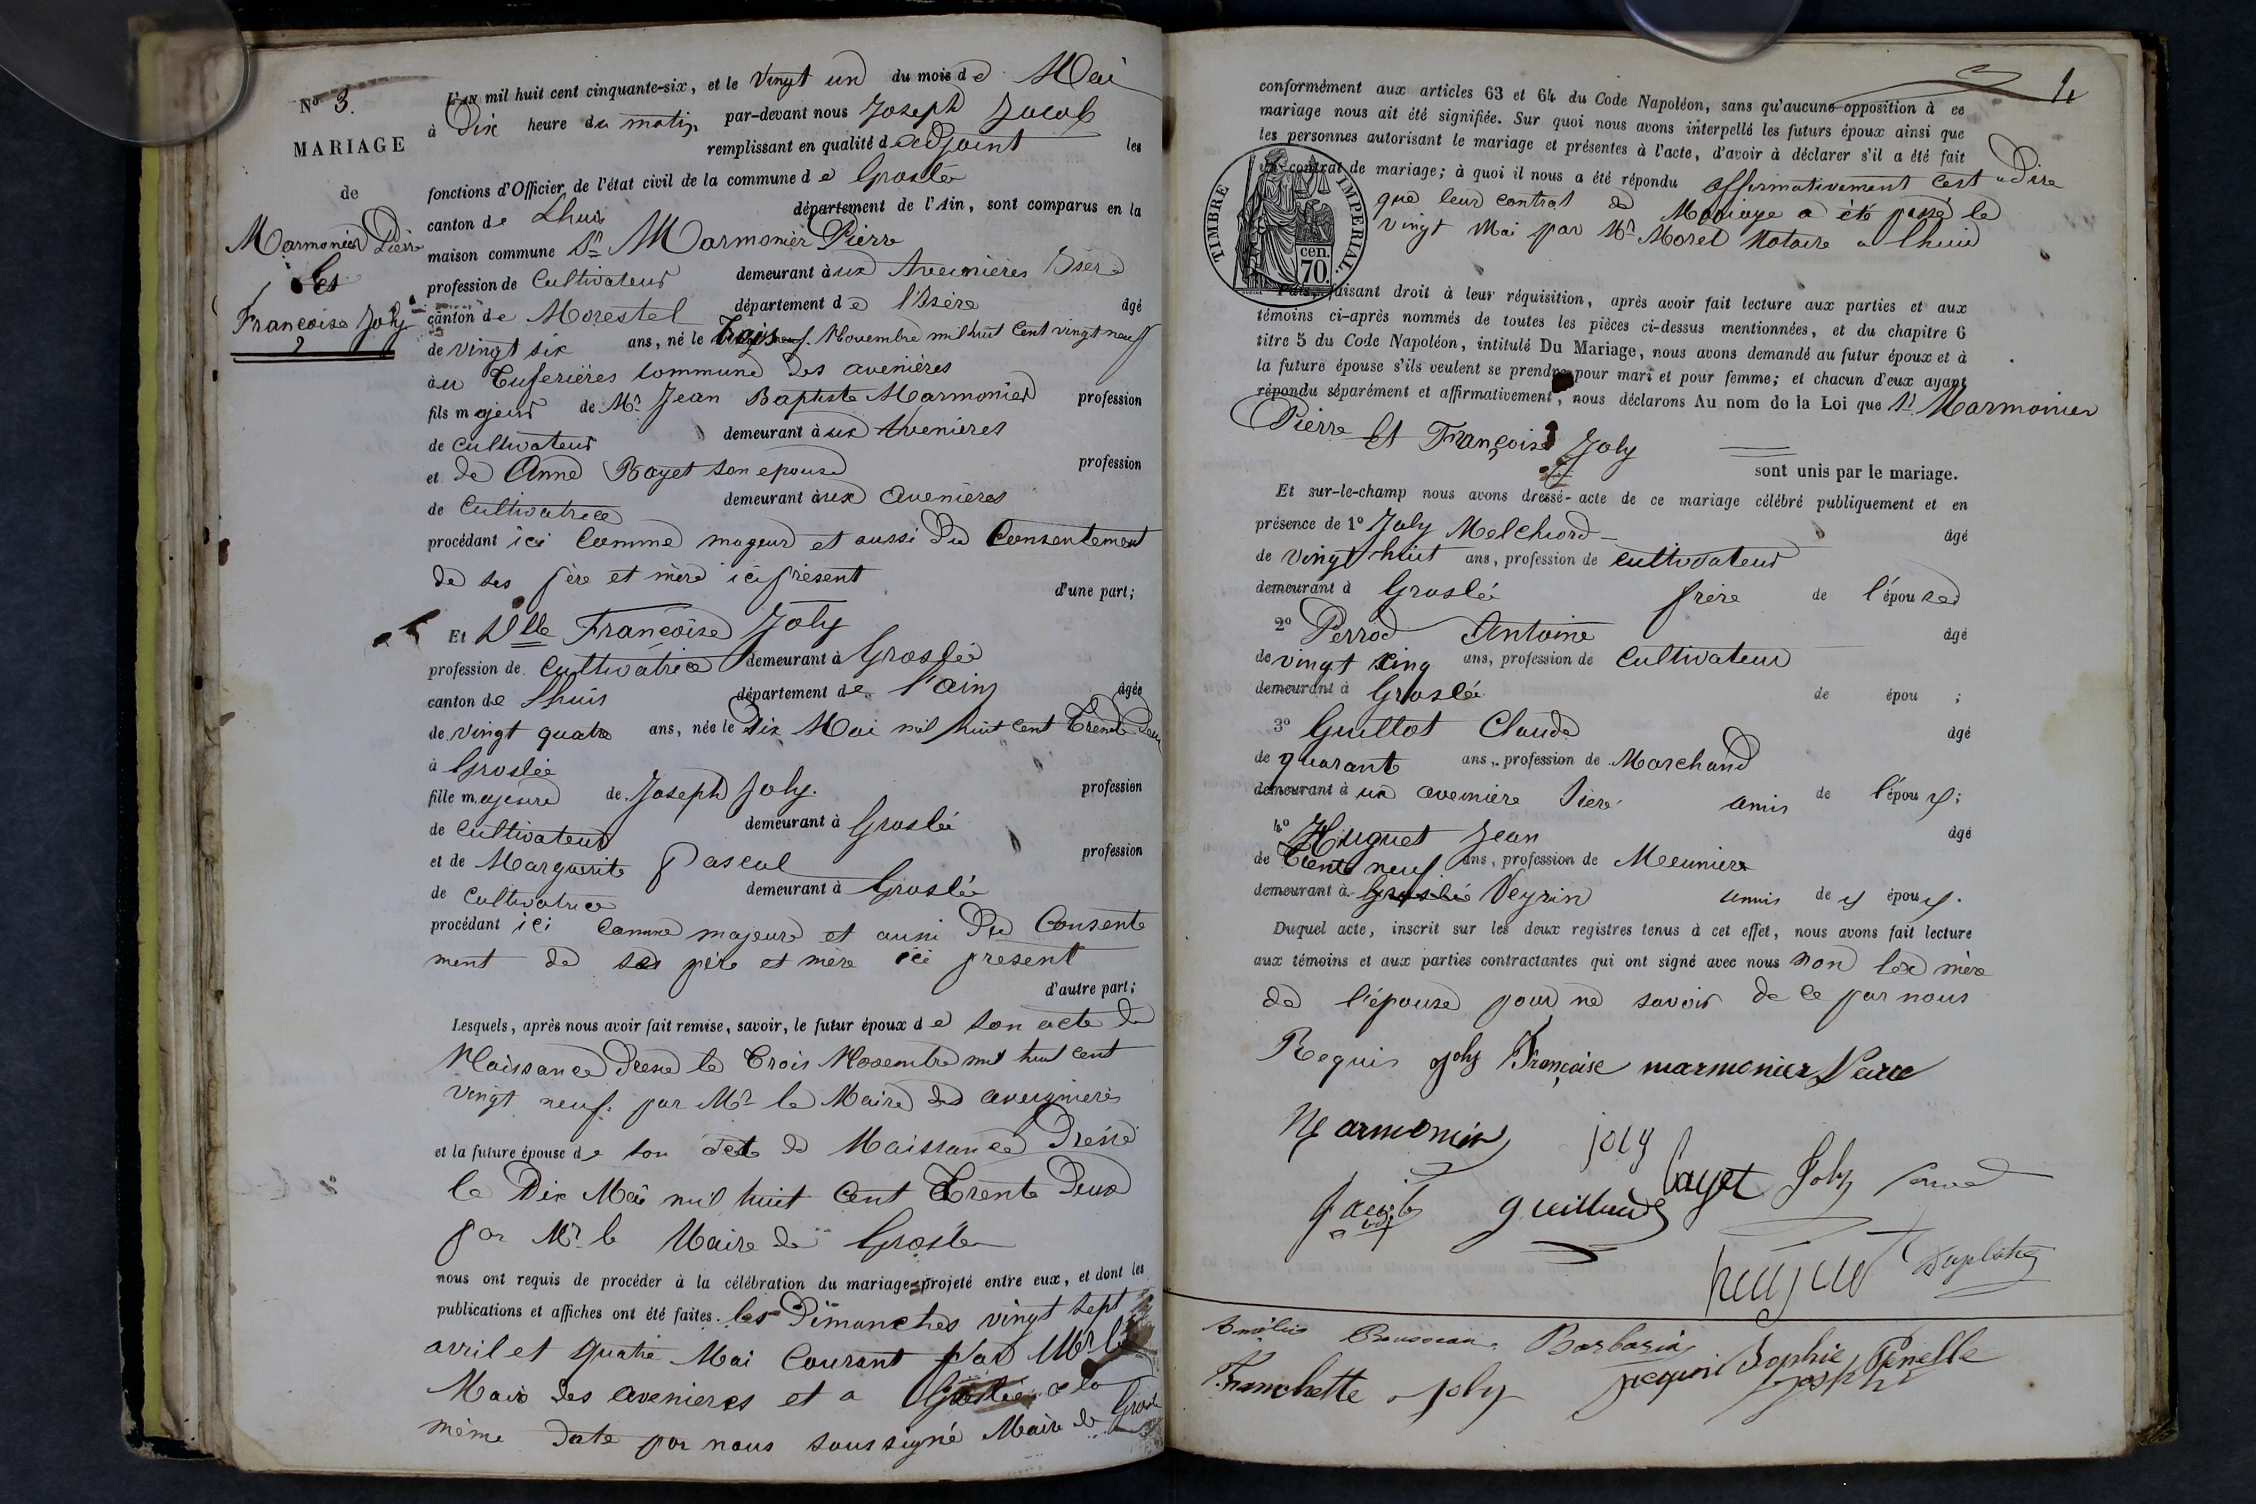 No 3.
MARIAGE
de
Marmonier Pierre
Et
Françoise Joly
L'an mil huit cent cinquante-six, et le vingt un du mois de Mai
à Dix heure du matin par-devant nous Joseph Jacob
remplissant en qualité d'adjoint les
fonctions d'Officier de l'état civil de la commune de Groslée
canton de Lhuis département de l'Ain, sont comparus en la
maison commune Sr Marmonier Pierre
profession de Cultivateur demeurant à ux Aveinières Isère
canton de Morestel département de l'Isère âgé
de vingt six ans, né le trois Novembre mil huit cent vingt neuf
àu Tuferières commune des avenières
fils majeur de Mr Jean Baptiste Marmonier profession
de cultivateur demeurant à ux Avenières
et de Anne Bayet son epouse profession
de Cultivatrice demeurant àux avenières
procédant ici comme majeur et aussi du Consentement
de ses père et mère ici présent
d'une part;
Et Dlle Françoise Joly
profession de cultivatrice demeurant à Groslée
canton de Lhuis département de l'ain âgée
de vingt quatre ans, née le Dix Mai mil huit cent Trente Deux
à Groslée
fille majeure de Joseph Joly profession
de cultivateur demeurant à Groslée
et de Marguerite Pascal profession
de Cultivatrice demeurant à Groslée
procédant ici comme majeure et aussi Du Consente
ment de ses père et mère ici présent
d'autre part;
Lesquels, après nous avoir fait remise, savoir, le futur époux de son acte de
Naissance Dressé le Trois Novembre mil huit cent
vingt neuf par Mr le Maire des aveignieres
et la future épouse de son acte de Naissance Dressé
le Dix Mai mil huit Cent Trente Deux
par Mr le Maire de Groslée
nous ont requis de procéder à la célébration du mariage projeté entre eux, et dont les
publications et affiches ont été faites les Dimanches vingt sept
avril et quatre Mai Courant par Mr le
Maire des avenieres et a Groslée a la
même Date par nous soussigné Maire de Groslée
4
conformément aux articles 63 et 64 du Code Napoléon, sans qu'aucune opposition à ce
mariage nous ait été signifiée. Sur quoi nous avons interpellé les futurs époux ainsi que
les personnes autorisant le mariage et présentes à l'acte, d'avoir à déclarer s'il a été fait
un contrat de mariage; à quoi il nous a été répondu affirmativement c'est a Dire
que leur contrat de Mariage a été passé le
vingt Mai par Mr Morel Notaire a Lhuis
TIMBRE IMPERIAL.
70 cen.
Puis, faisant droit à leur réquisition, après avoir fait lecture aux parties et aux
témoins ci-après nommés de toutes les pièces ci-dessus mentionnées, et du chapitre 6
titre 5 du Code Napoléon, intitulé Du Mariage, nous avons demandé au futur époux et à
la future épouse s'ils veulent se prendre pour mari et pour femme; et chacun d'eux ayant
répondu séparément et affirmativement, nous déclarons Au nom de la Loi que Sr Marmonier
Pierre Et Françoise Joly
sont unis par le mariage.
Et sur-le-champ nous avons dressé acte de ce mariage célébré publiquement et en
présence de 1° Joly Melchiord âgé
de vingt huit ans, profession de cultivateur
demeurant à Groslée frère de l'épouse
2° Perrod Antoine âgé
de vingt cinq ans, profession de Cultivateur
demeurant à Groslée de épou ;
3° Guillot Claude âgé
de quarante ans, profession de Marchand
demeurant à ux aveinière Isère amis de l'époux;
4° Huguet Jean âgé
de Trente neuf ans, profession de Meuniere
demeurant à Groslée Veyrin amis de x époux.
Duquel acte, inscrit sur les deux registres tenus à cet effet, nous avons fait lecture
aux témoins et aux parties contractantes qui ont signé avec nous non la mère
de l'épouse pour ne savoir de ce par nous
Requis joly Françoise marmonier Pierre
Marmonier joly Bayet Joly
Jacob adjt
huguet
Barbarin
Franchette Joly jacquin Sophie Penelle
Joséphine